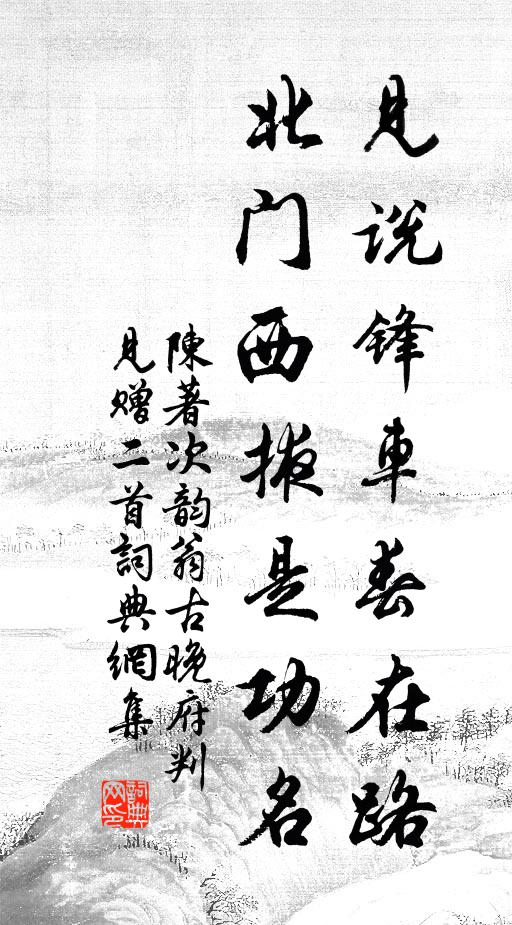 見说锋車春在路
北门西掖是功名
陳著次韵翁古晚府判
見赠二首詞典網集
詞典
网印